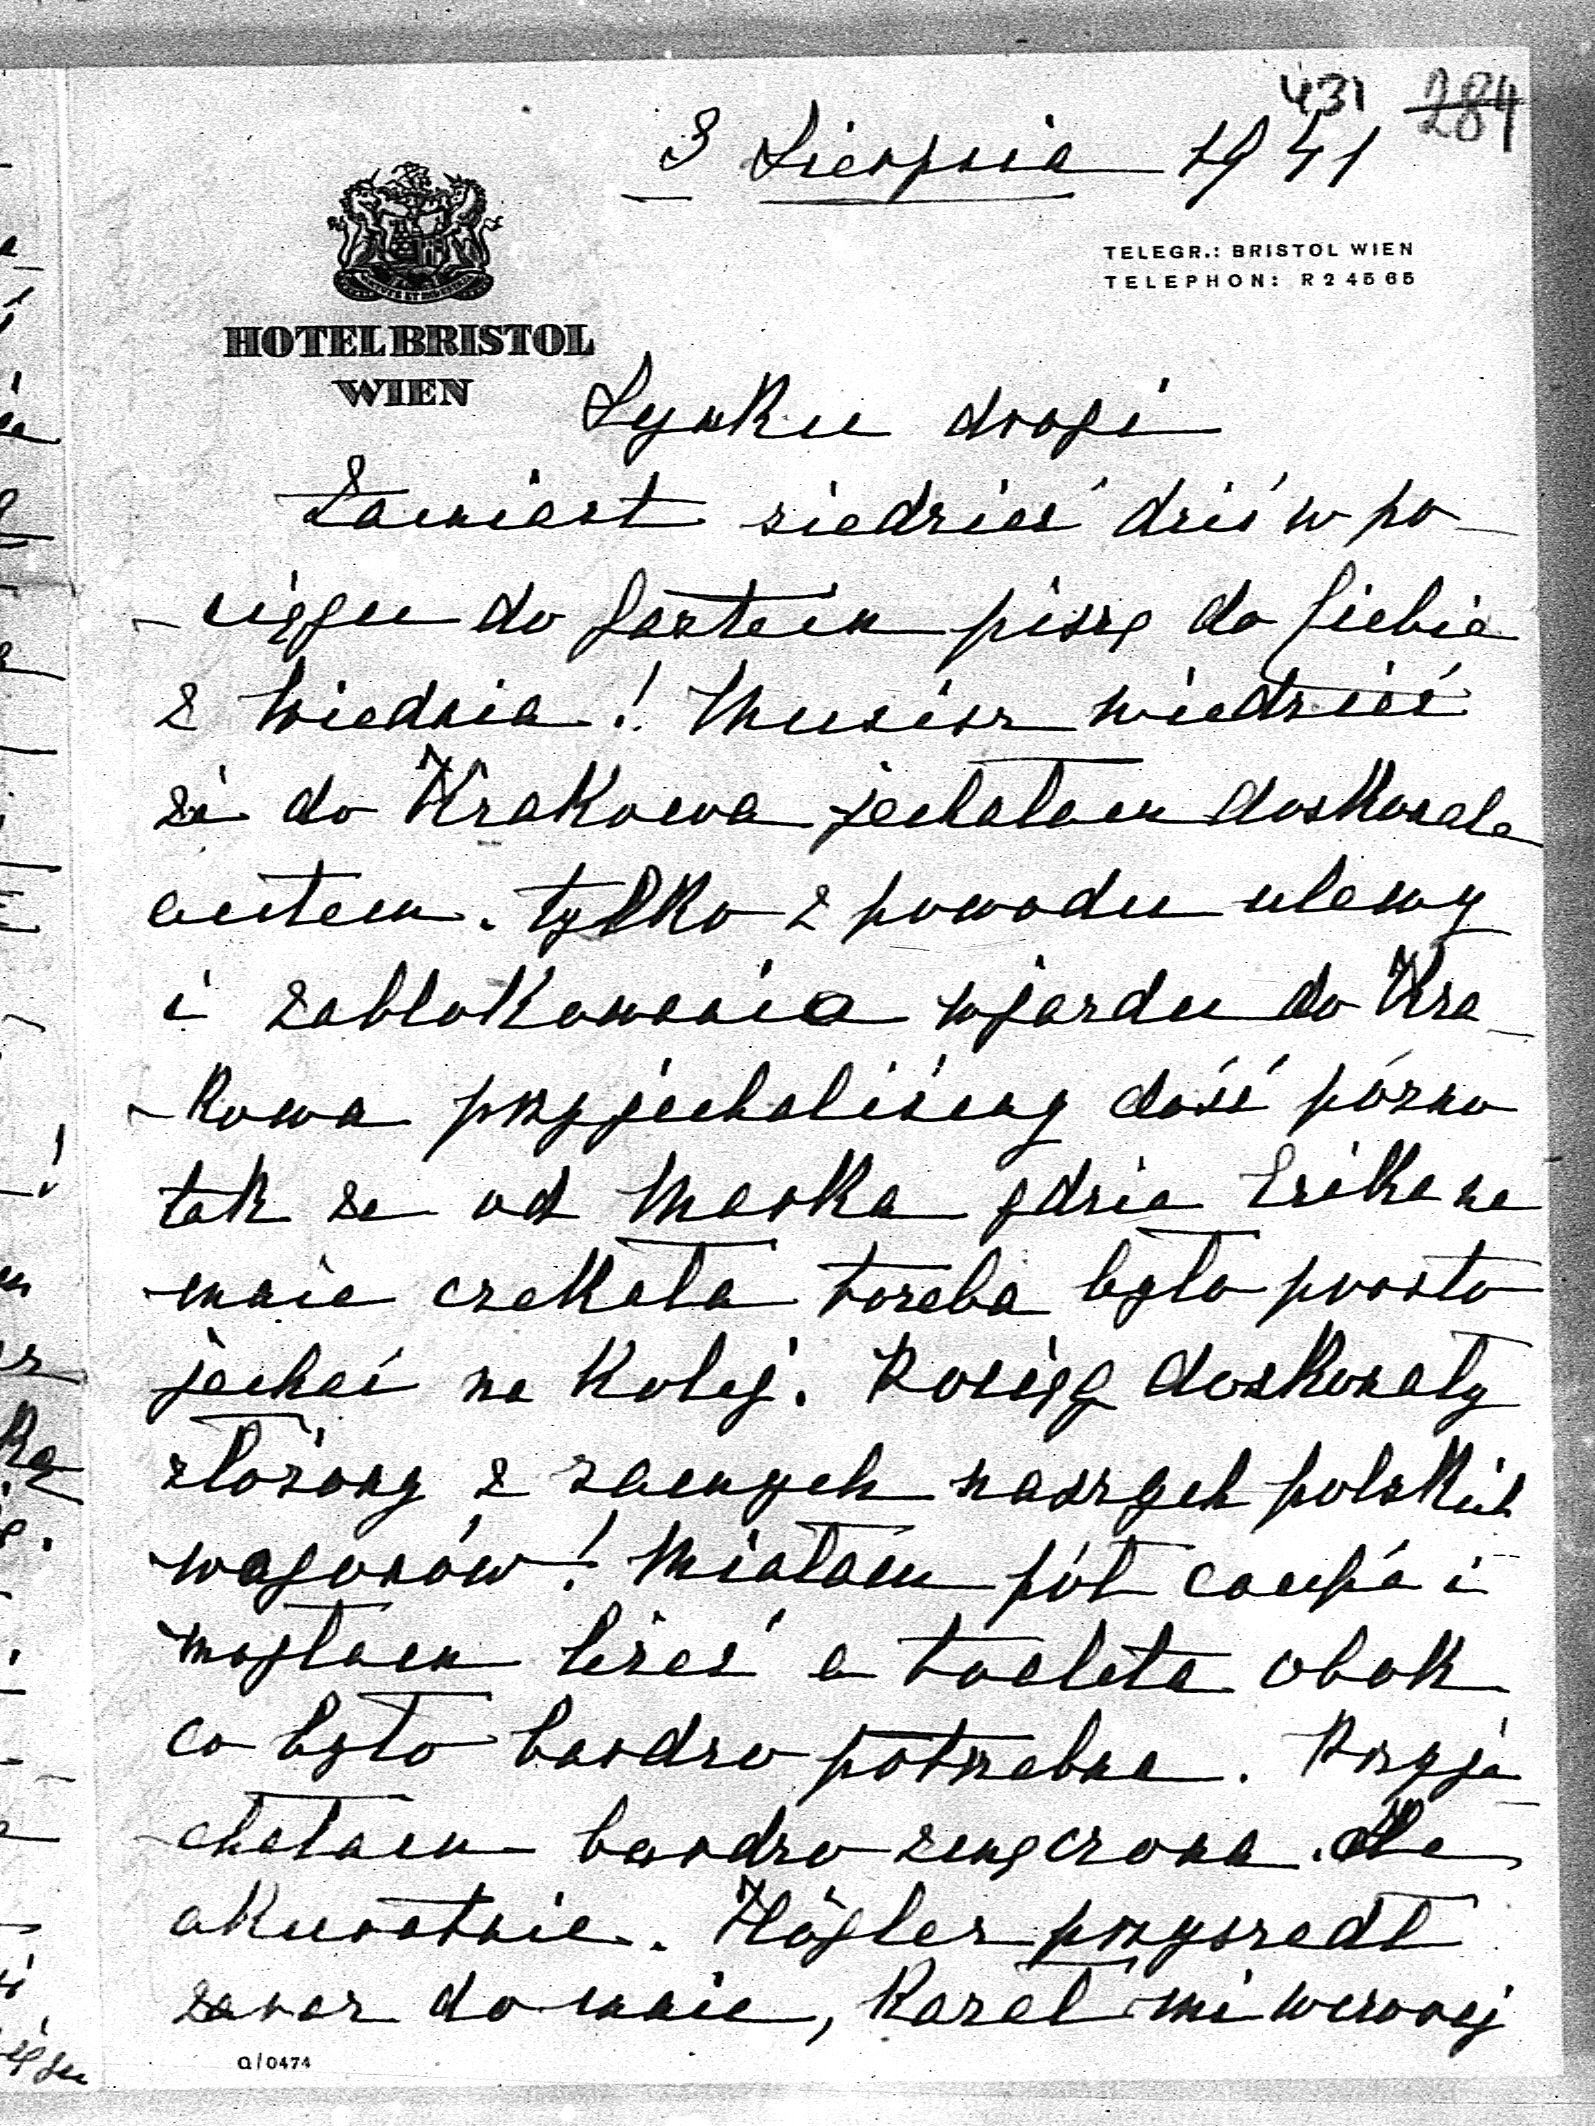 431 284
3 Sierpnia 1941
TELEGR.: BRISTOL WIEN
TELEPHON: R 2 45 65
HOTEL BRISTOL
WIEN
Synku drogi
Zamiast siedzieć dziś w po-
-ciągu do Gastein piszę do Ciebie
z Wiednia! Musisz wiedzieć
że do Krakowa jechałam doskonale
autem. tylko z powodu ulewy
i zablokowania wjazdu do Kra-
-kowa przyjechaliśmy dość pózno
tak że od Marka gdzie Erika na
mnie czekała trzeba było prosto
jechać na kolej. Pociąg doskonały
złożony z zacnych naszych polskich
wagonów! Miałam pół coupé i
mogłam leżeć a toaleta obok
co było bardzo potrzebne. Przyje-
-chałam bardzo zmęczona. Ale
akuratnie. Högler przyszedł
zaraz do mnie, kazał mi wczoraj
Q/0474